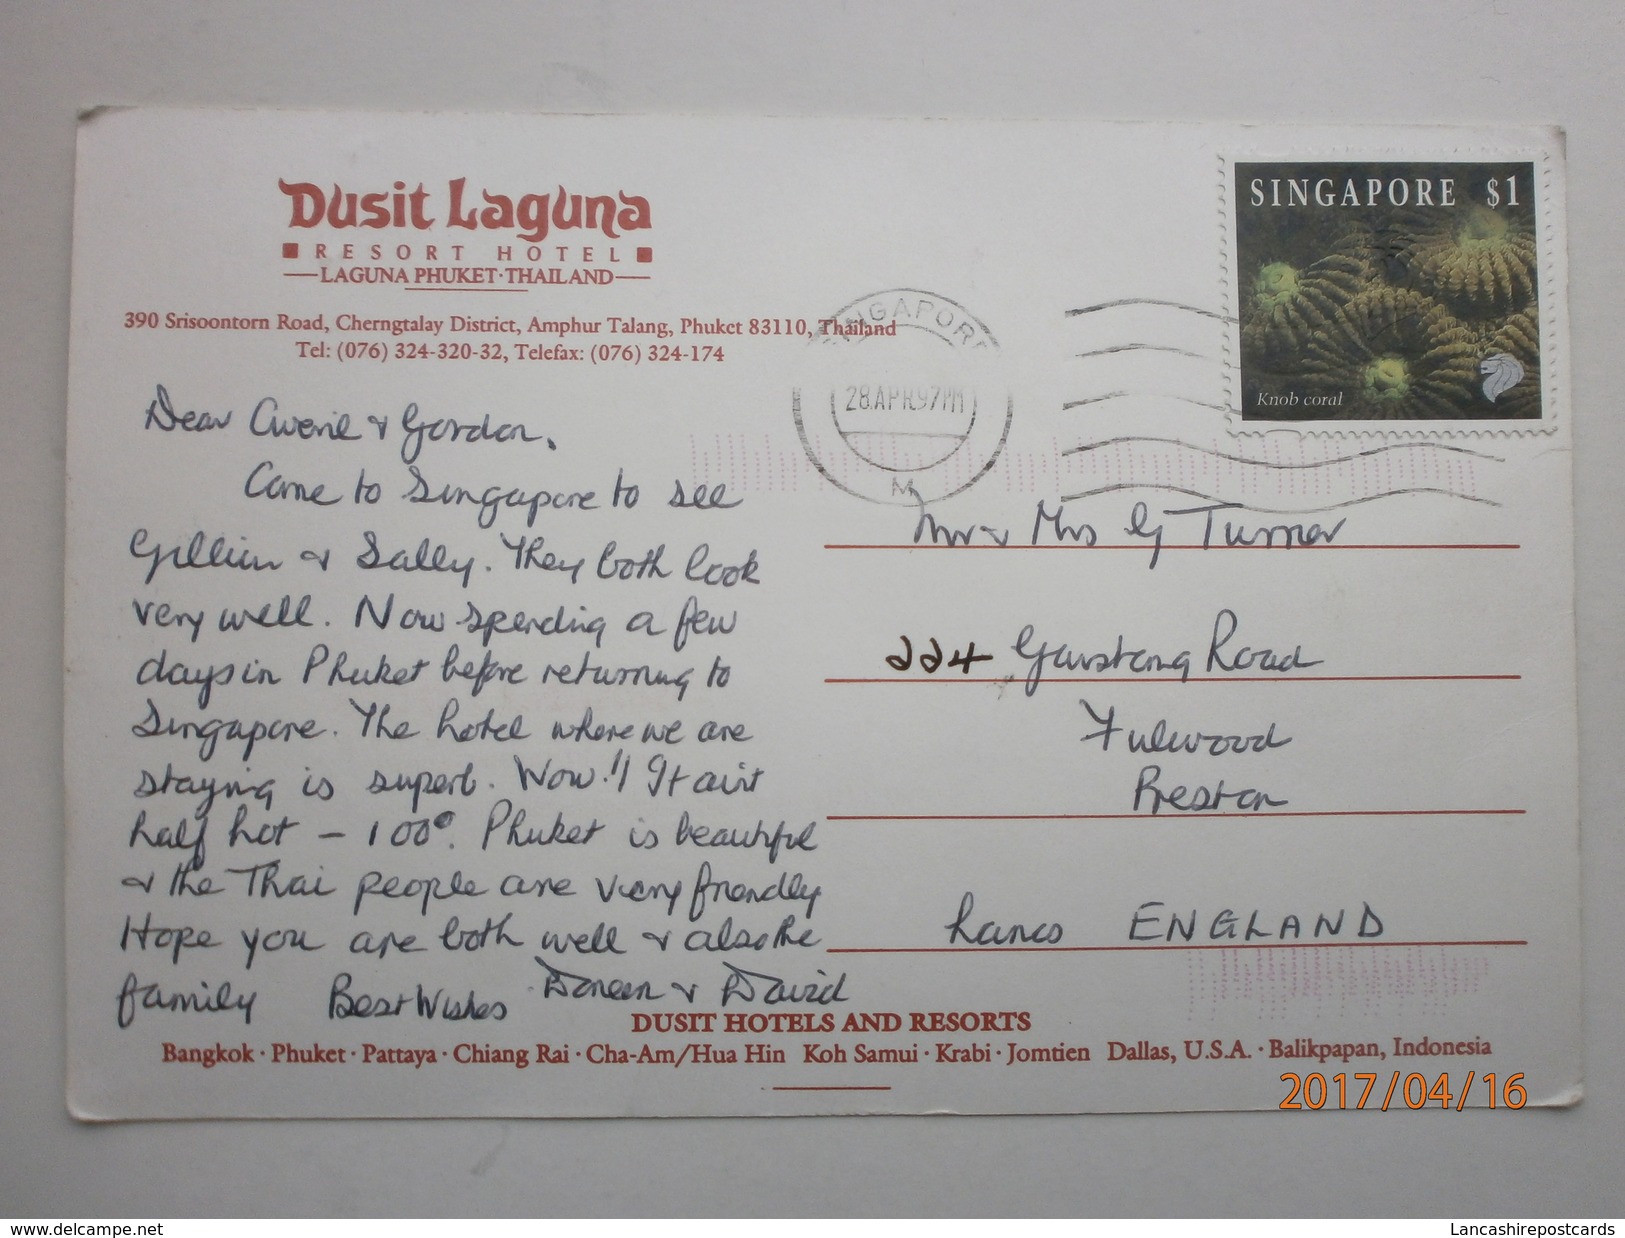 Dusit Laguna
RESORT HOTEL
LAGUNA PHUKET·THAILAND
390 Srisoontorn Road, Cherngtalay District, Amphur Talang, Phuket 83110, Thailand
Tel: (076) 324-320-32, Telefax: (076) 324-174
SINGAPORE $1
Knob coral
SINGAPORE
28APR97PM
M
Dear Averil & Gordon,
Came to Singapore to see
Gillian & Sally. They both look
very well. Now spending a few
days in Phuket before returning to
Singapore. The hotel where we are
staying is superb. Wow!! It aint
half hot – 100°. Phuket is beautiful
& the Thai people are very friendly
Hope you are both well & also the
family Best Wishes Doreen & David
Mr & Mrs G Turner
224 Garstang Road
Fulwood
Preston
Lancs ENGLAND
DUSIT HOTELS AND RESORTS
Bangkok · Phuket · Pattaya · Chiang Rai · Cha-Am/Hua Hin Koh Samui · Krabi · Jomtien Dallas, U.S.A. · Balikpapan, Indonesia
2017/04/16
www.delcampe.net
Lancashirepostcards